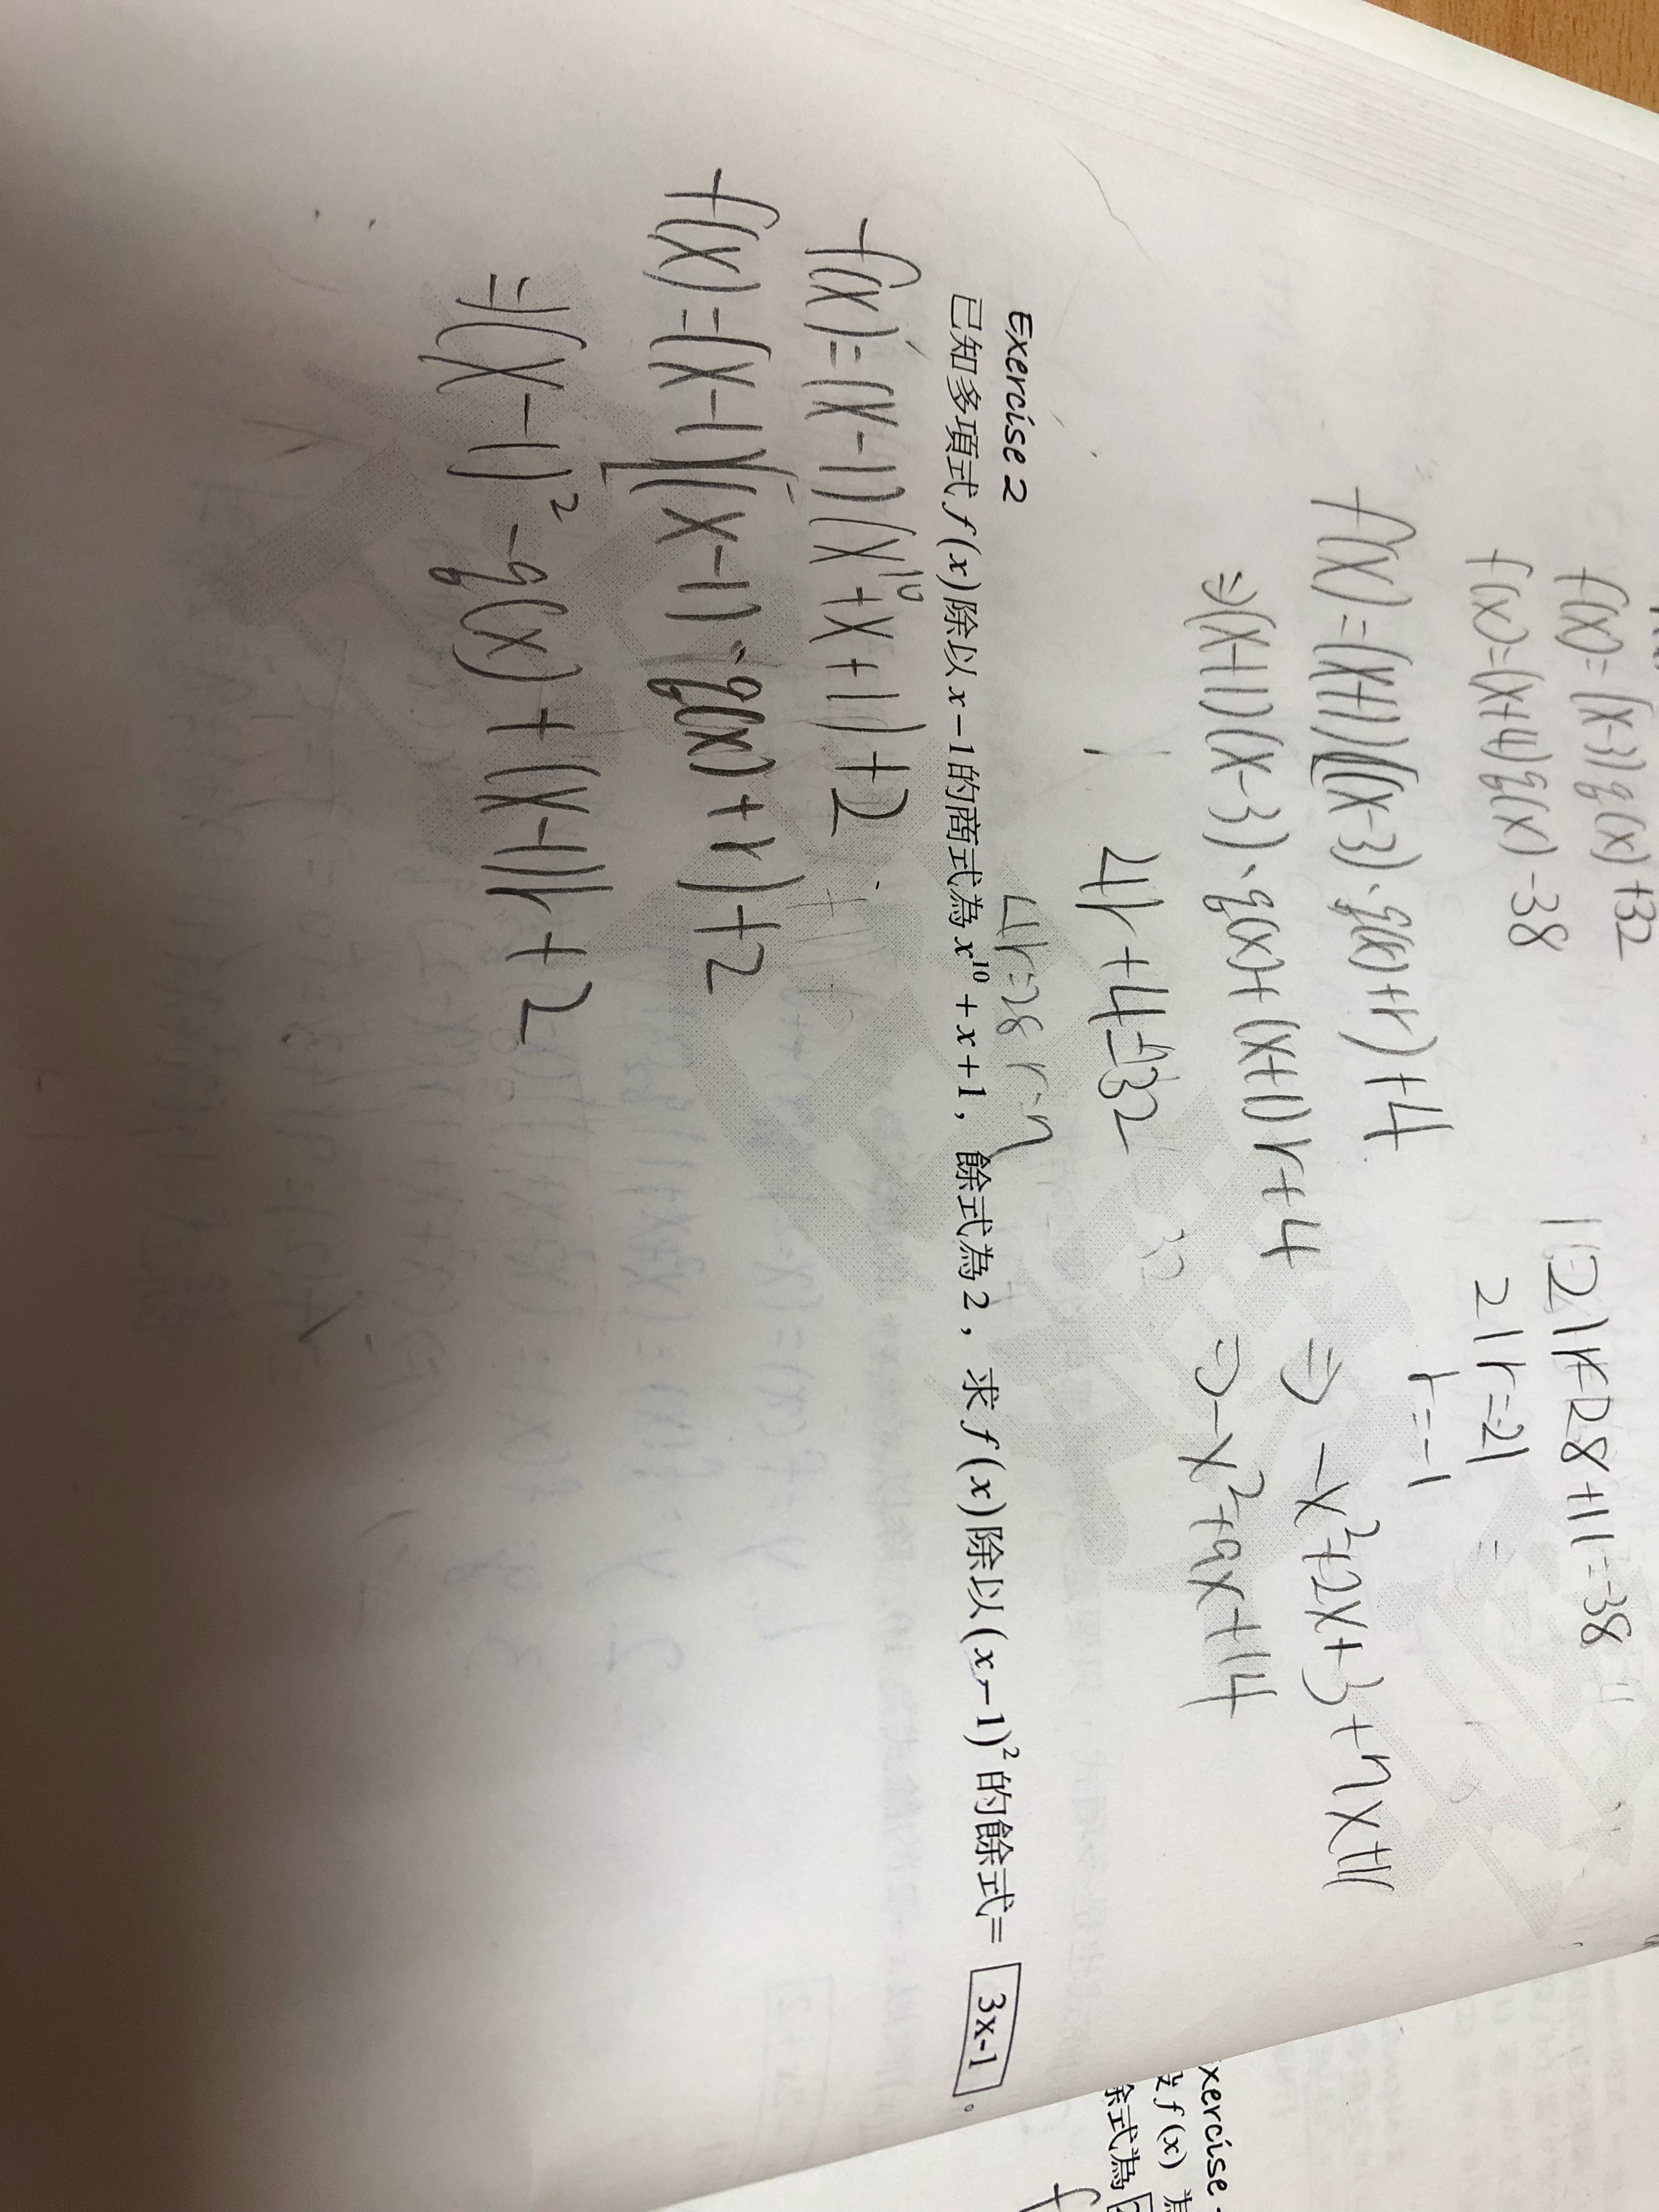 f(x) = (x-3) q(x) +32
f(x) = (x+4) q(x) -38
f(x) = (x+1)((x-3)·q(x)+r)+4
⇒(x+1)(x-3)·q(x)+(x+1)r+4
4r+4=32
4r=28 r=7
2r=21
r=-1
⇒ -x²+2x+3+7x+11
⇒ -x²+9x+14
Exercise 2
已知多項式 f(x)除以 x-1的商式為 x¹⁰+x+1，餘式為 2，求 f(x)除以(x-1)²的餘式= 3x-1。
f(x) = (x-1)(x¹⁰+x+1)+2
f(x) = (x-1)[(x-1)·q(x)+r)+2
=(x-1)²-q(x)+(x-1)r+2
xercise
f(x)
餘式為